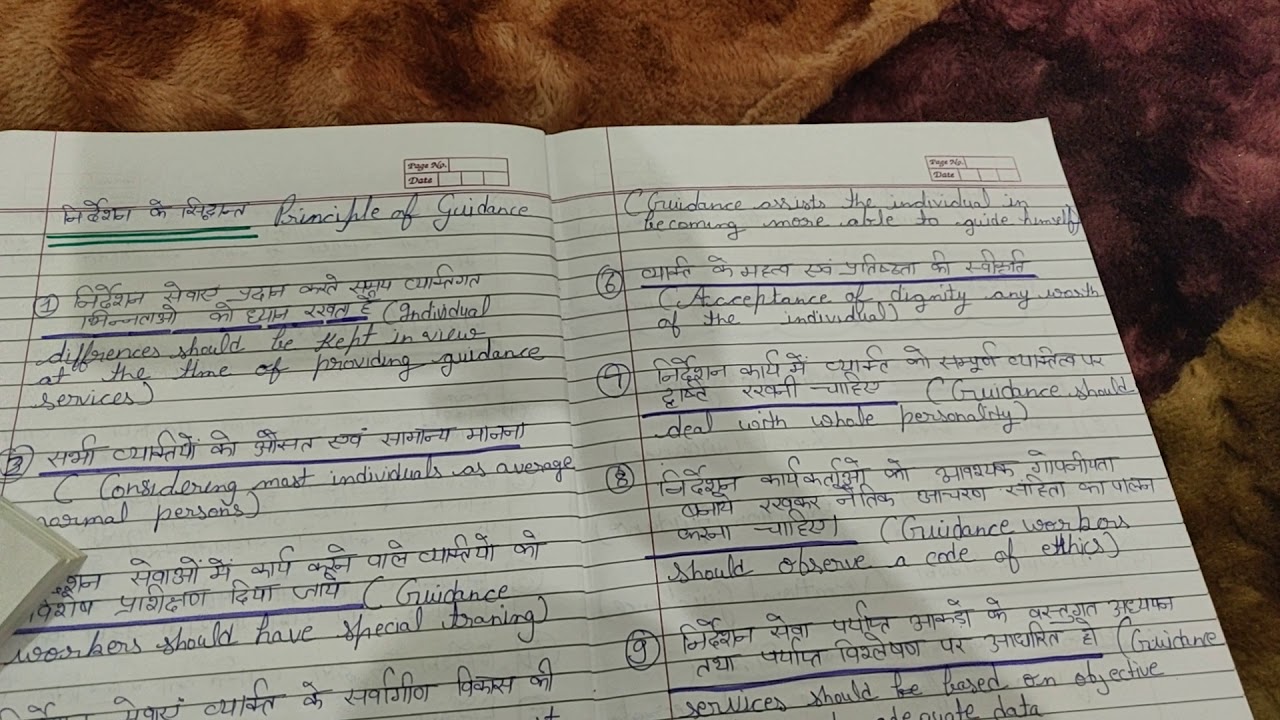 Page No.
Date
निर्देशन के सिद्धान्त Principle of Guidance
① निर्देशन सेवाएं प्रदान करते समय व्यक्तिगत
भिन्नताओं को ध्यान रखता है (Individual
diffrences should be kept in view
at the time of providing guidance
services)
सभी व्यक्तियों को औसत एवं सामान्य मानना
(Considering most individuals as average
normal persons)
सेवाओं में कार्य करने वाले व्यक्तियों को
विशेष प्रशिक्षण दिया जाये (Guidance
workers should have special traning)
सेवाएं व्यक्ति के सर्वांगीण विकास की
Page No.
Date
(Guidance assists the individual in
becoming more able to guide himself
⑥ व्यक्ति के महत्व एवं प्रतिष्ठता की स्वीकृति
(Acceptance of dignity any worth
of the individual)
⑦ निर्देशन कार्य में व्यक्ति को सम्पूर्ण व्यक्तित्व पर
दृष्टि रखनी चाहिए (Guidance should
deal with whole personality)
⑧ निर्देशन कार्यकर्ताओं को आवश्यक गोपनीयता
बनाये रखकर नैतिक आचरण संहिता का पालन
करना चाहिए। (Guidance workers
should observe a code of ethics)
⑨ निर्देशन सेवा पर्याप्त आकडों के वस्तुगत अध्ययन
तथा पर्याप्त विश्लेषण पर आधारित हो (Guidance
services should be based on objective
adequate data